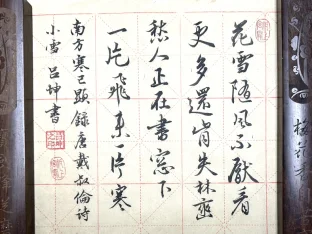 花雪随风不厌看
更多還肯失林巒
愁人正在書窓下
一片飛来一片寒
南方寒已顕録唐戴叔倫詩
小雪 呂坤書